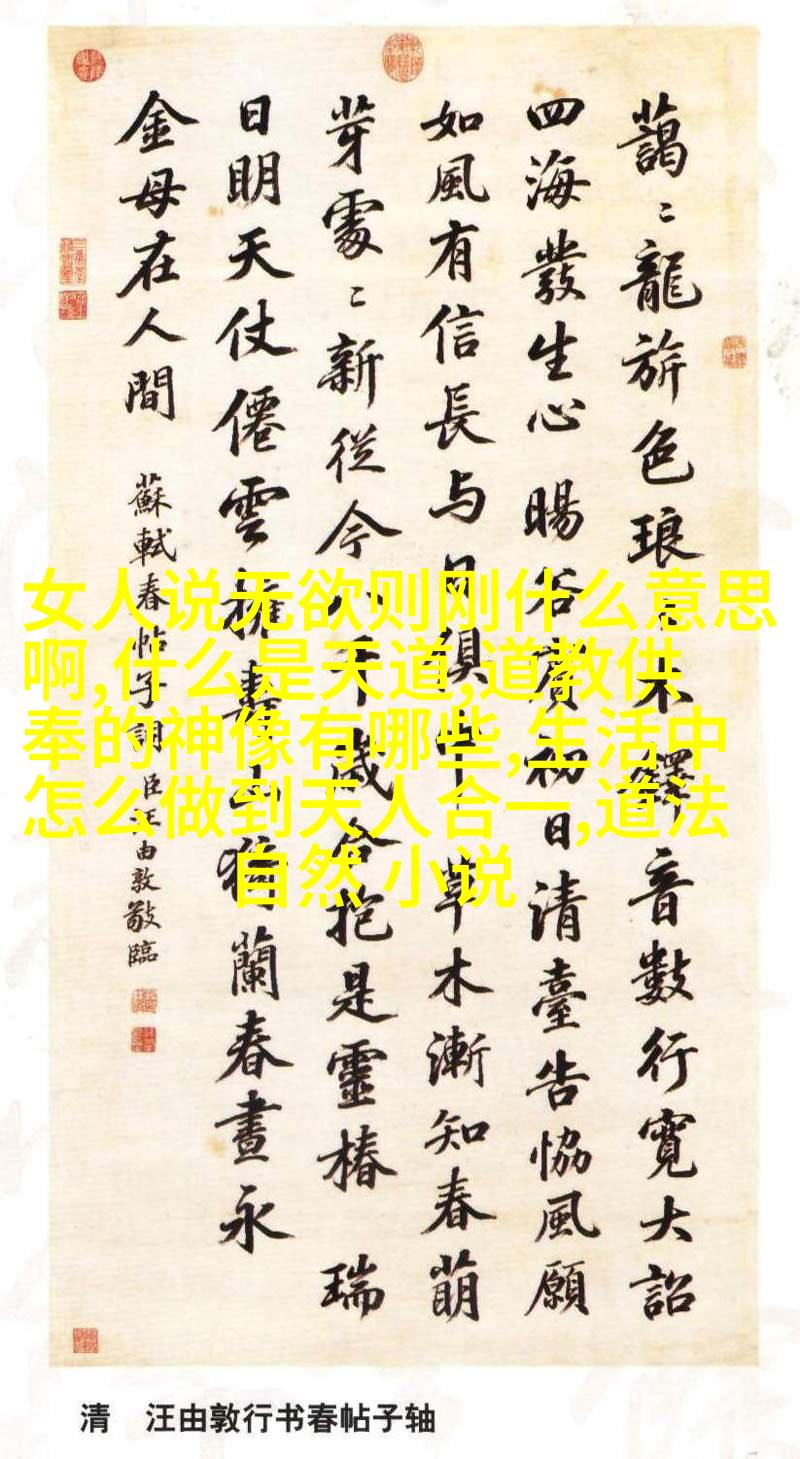 藹〻龍旂色琅〻木鐸音數行寬大詔
四海發生心 暘谷賓初日清臺告協風願
如風有信長与日俱中 草木漸知春萌
芽處〻新從今八千歲合抱是靈椿 瑞
日明天仗僊雲擁壽山猗蘭春晝永
金母在人間 蘇軾春帖子詞 臣汪由敦敬臨
女人说无欲则刚什么意思
啊,什么是天道,道教供
奉的神像有哪些,生活中
怎么做到天人合一,道法
自然 小说
清 汪由敦行书春帖子轴